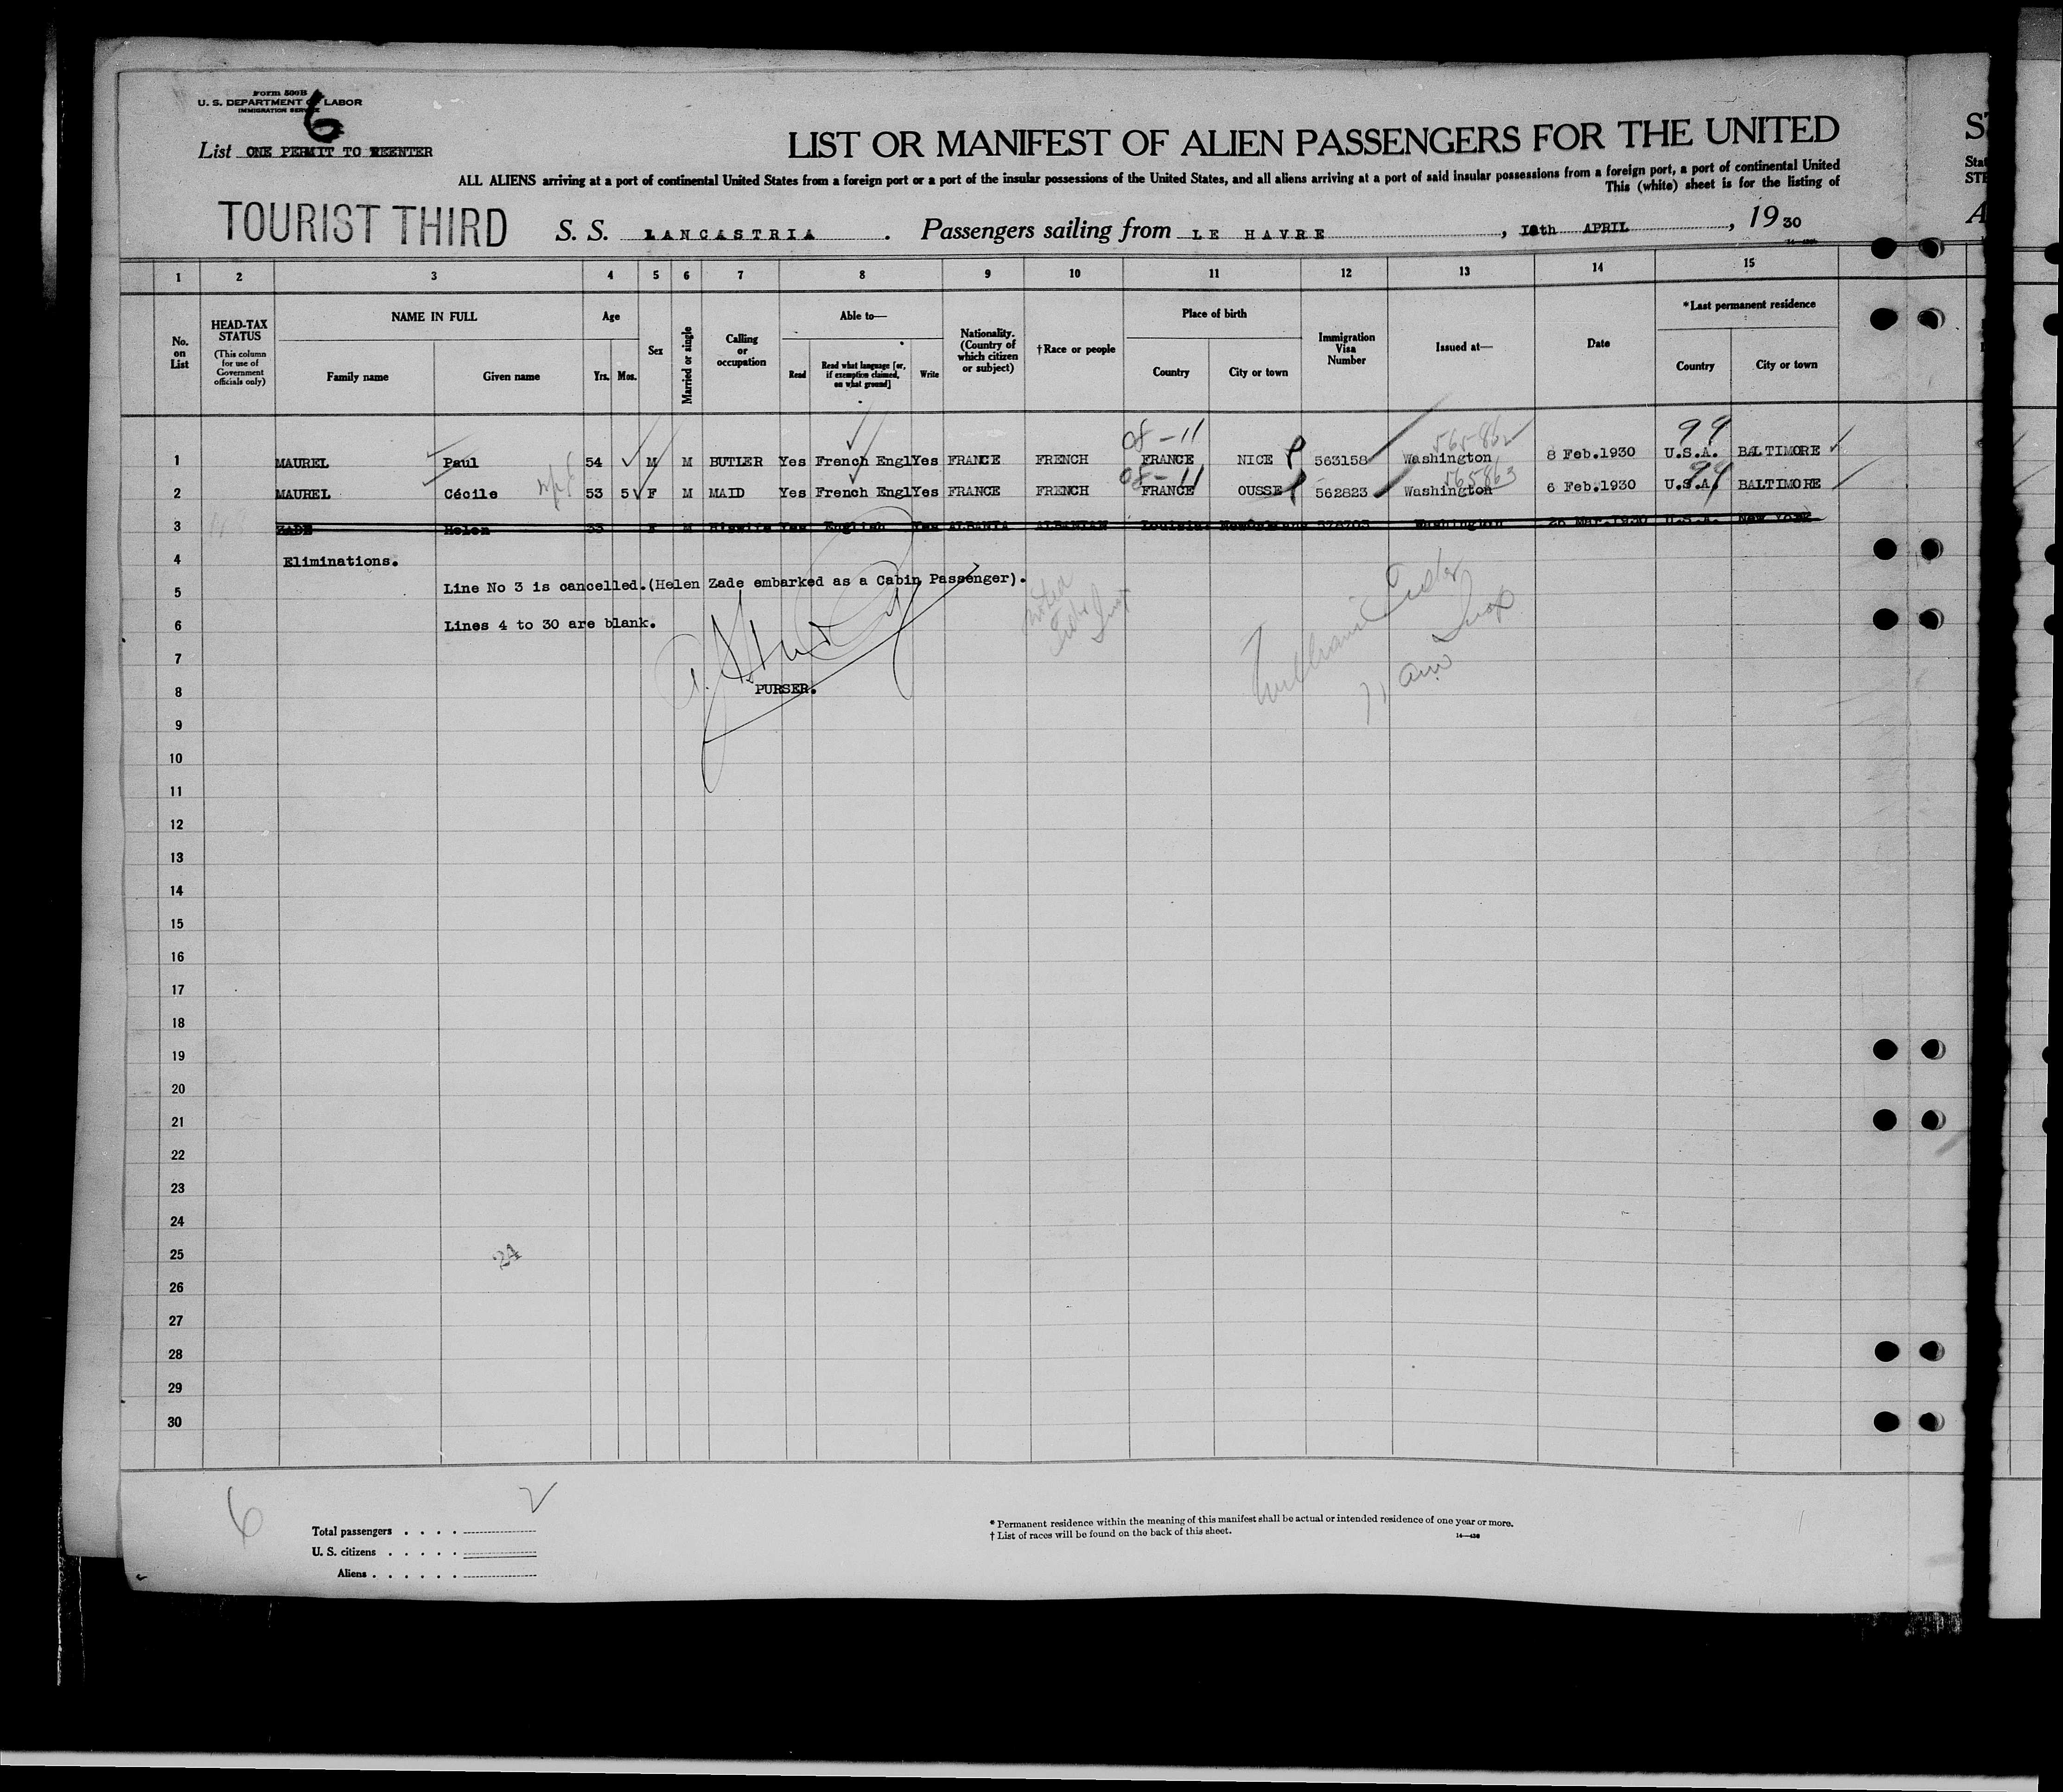 Form 500B
U. S. DEPARTMENT OF LABOR
IMMIGRATION SERVICE
6
List ONE PERMIT TO REENTER
LIST OR MANIFEST OF ALIEN PASSENGERS FOR THE UNITED
ALL ALIENS arriving at a port of continental United States from a foreign port or a port of the insular possessions of the United States, and all aliens arriving at a port of said insular possessions from a foreign port, a port of continental United
This (white) sheet is for the listing of
TOURIST THIRD S. S. LANCASTRIA. Passengers sailing from LE HAVRE, APRIL, 1930
1 2 3 4 5 6 7 8 9 10 11 12 13 14 15
No. on List
HEAD-TAX STATUS (This column for use of Government officials only)
NAME IN FULL Family name Given name
Age Yrs. Mos.
Sex
Married or single
Calling or occupation
Able to— Read Read what language [or, if exemption claimed, on what ground] Write
Nationality. (Country of which citizen or subject)
†Race or people
Place of birth Country City or town
Immigration Visa Number
Issued at—
Date
*Last permanent residence Country City or town
08-11 565862 99
1 MAUREL Paul 54 M M BUTLER Yes French Engl Yes FRANCE FRENCH FRANCE NICE 563158 Washington 8 Feb.1930 U.S.A. BALTIMORE
08-11 565863 99
2 MAUREL Cécile 53 5 F M MAID Yes French Engl Yes FRANCE FRENCH FRANCE OUSSE 562823 Washington 6 Feb.1930 U.S.A. BALTIMORE
3 ZADE Helen 33 F M H'swife Yes English Yes ALBANIA ALBANIAN Louisiana NewOrleans Washington 26 Mar.1930 U.S.A. New York
4 Eliminations.
5 Line No 3 is cancelled.(Helen Zade embarked as a Cabin Passenger).
6 Lines 4 to 30 are blank.
7
8 PURSER.
9
10
11
12
13
14
15
16
17
18
19
20
21
22
23
24
25 24
26
27
28
29
30
6 2
Total passengers . . . .
U. S. citizens . . . . .
Aliens . . . . . .
* Permanent residence within the meaning of this manifest shall be actual or intended residence of one year or more.
† List of races will be found on the back of this sheet.